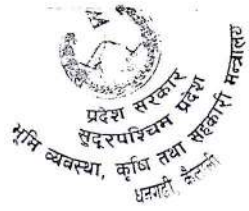 प्रदेश सरकार
सुदूरपश्चिम प्रदेश
भूमि व्यवस्था, कृषि तथा सहकारी मन्त्रालय
धनगढी, कैलाली